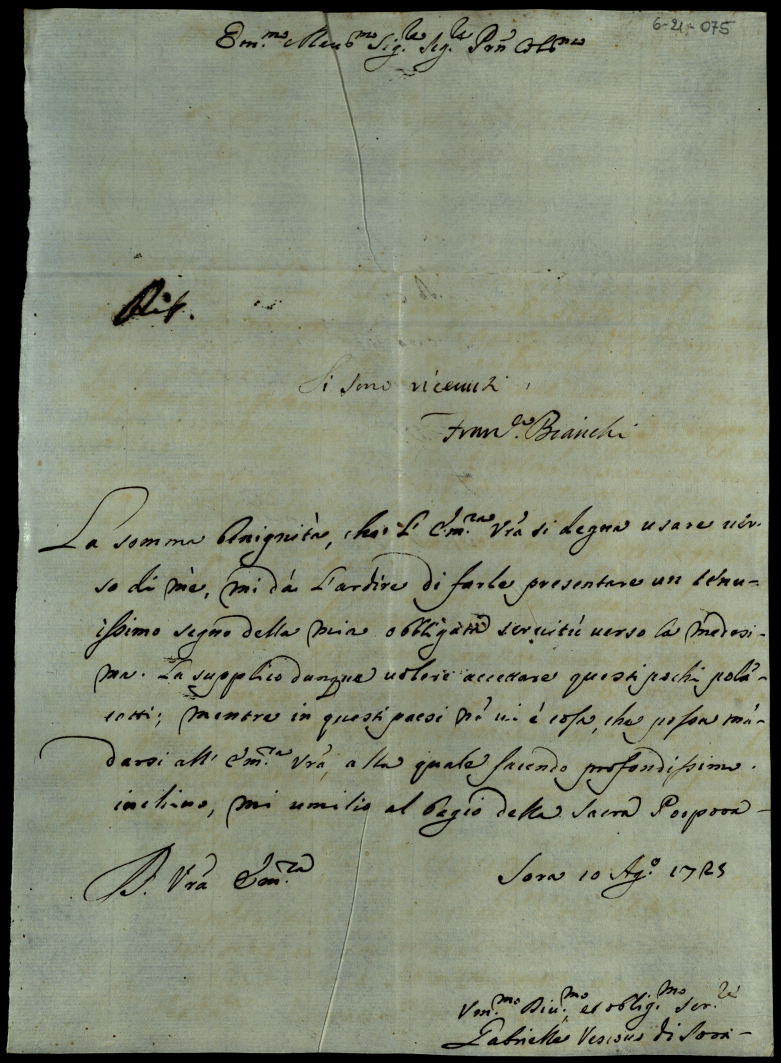 6-21-075
Em.mo e Reu.mo Sig.re Sig.re Prñ Col.mo
Ris.
Si sono riceuuti
Fran.co Bianchi
La somma benignità, che L' Em.za Vrã si degna usare uer-
so di mè, mi dà L'ardire di farle presentare un tenu-
issimo segno della mia obbligatã seruitù uerso la medesi-
ma. La supplico dunque uolere accettare questi pochi polã-
cotti; mentre in questi paesi nõ ui è cosa, che possa mã-
darsi all' Em.za Vrã, alla quale facendo profondissimo
inchino, mi umilio al bagio della Sacra Porpora-
D. Vrã Em.za
Sora 10 Ag.o 1723
Vm.mo Diu.mo et oblig.mo Ser.re
Gabrielle Vescouo di Sora-